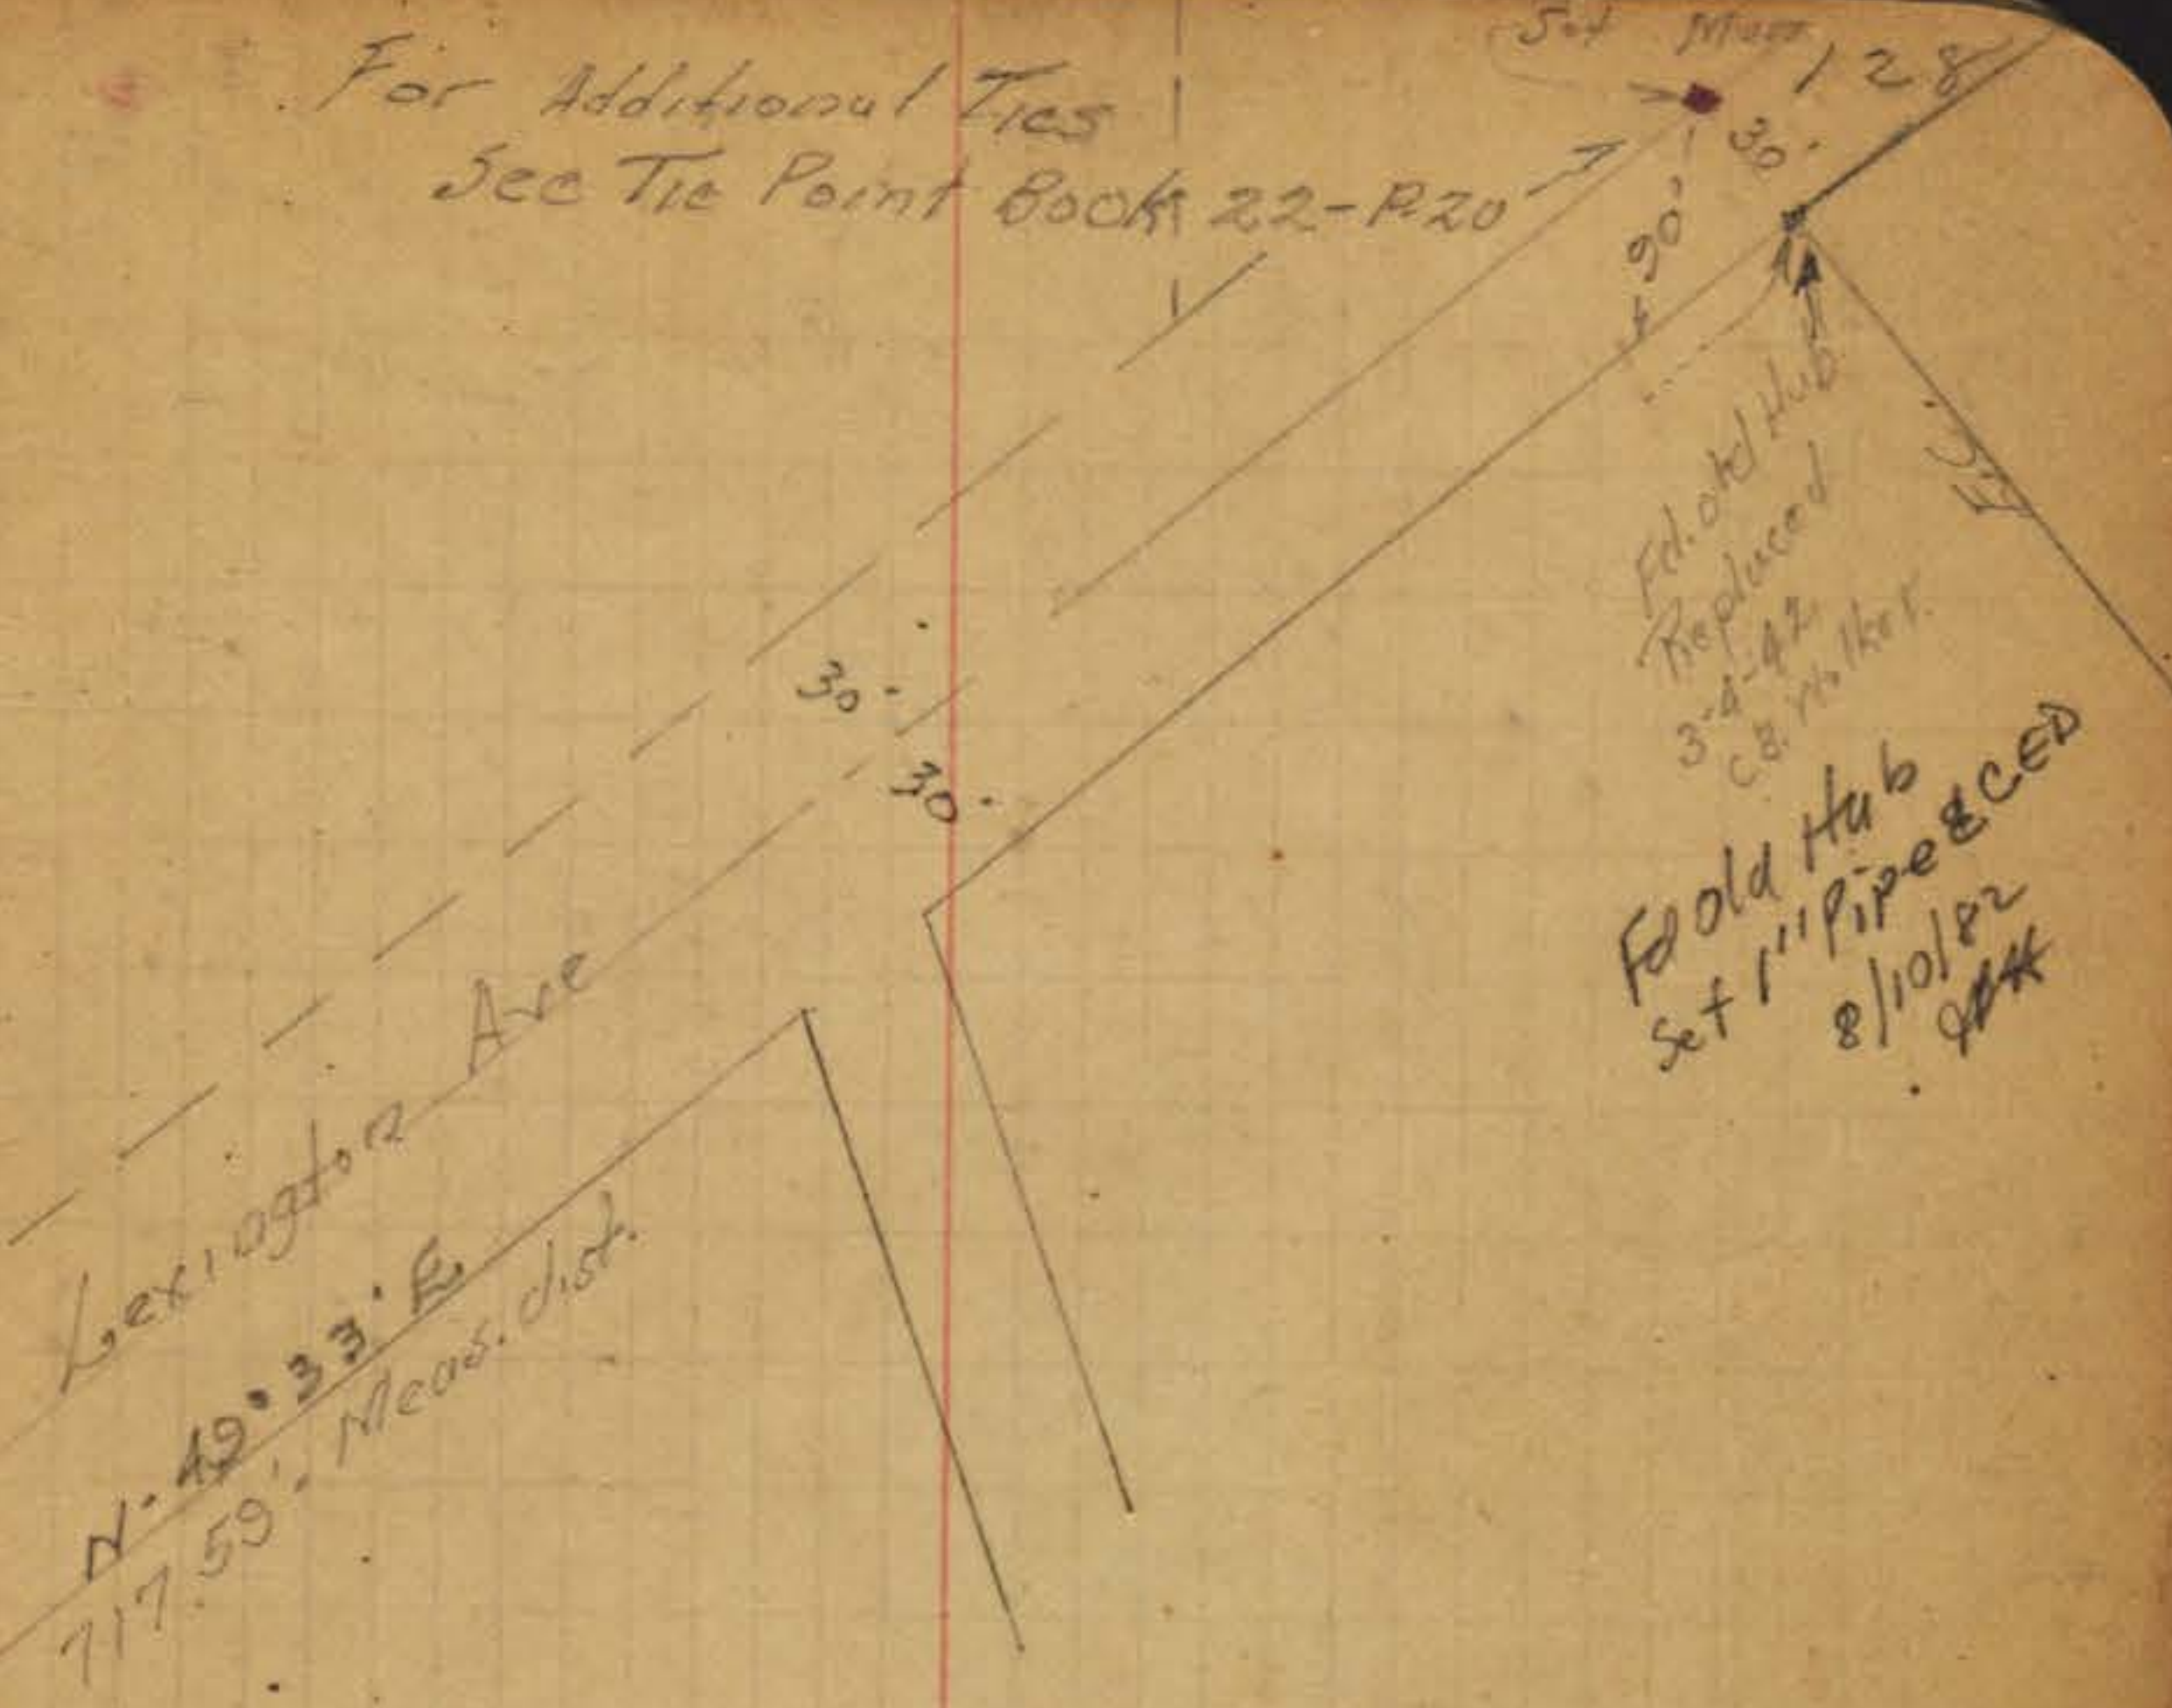 Set Mon
128
For Additional Ties
See Tie Point Book 22-P20
30'
90'
Fd. old Hub
Replaced
3-4-42
C.B. Walker.
Fd old Hub
Set 1" Pipe & CED
8/10/82
30'
30'
Lexington Ave
N. 49° 33' E.
717.59' Meas. dist.